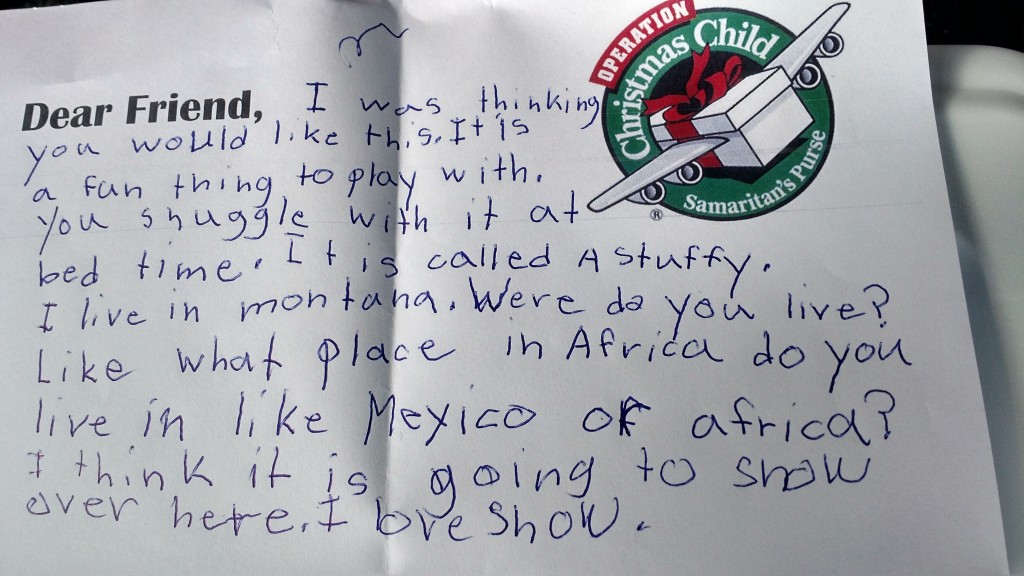 OPERATION
Christmas Child
Samaritan's Purse
®
Dear Friend, I was thinking
you would like this. It is
a fun thing to play with.
You snuggle with it at
bed time. It is called A stuffy.
I live in montana. Were do you live?
Like what place in Africa do you
live in like Mexico or africa?
I think it is going to snow
over here. I love snow.